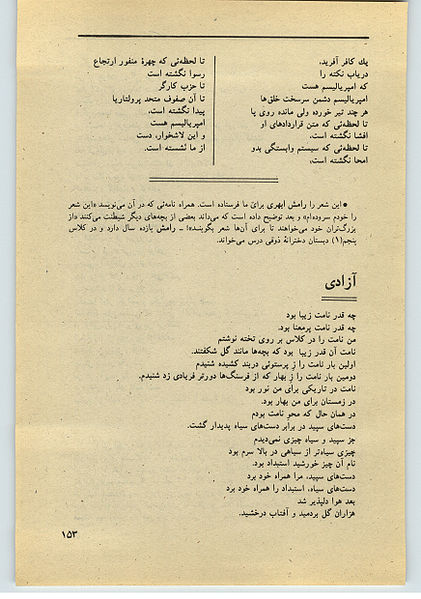 یك کافر آفرید.
دریاب نکته را
که امپریالیسم هست
امپریالیسم دشمن سرسخت خلق‌ها
هر چند تیر خورده ولی مانده روی پا
تا لحظه‌ئی که متن قراردادهای او
افشا نگشته است.
تا لحظه‌ئی که سیستم وابستگی بدو
امحا نگشته است،
تا لحظه‌ئی که چهرهٔ منفور ارتجاع
رسوا نگشته است
تا حزب کارگر
تا آن صفوف متحد پرولتاریا
پیدا نگشته است.
امپریالیسم هست
و این لاشخوار، دست
از ما نشسته است.
● این شعر را رامش ابهری برای ما فرستاده است. همراه نامه‌ئی که در آن می‌نویسد «این شعر
را خودم سروده‌ام» و بعد توضیح داده است که می‌داند بعضی از بچه‌های دیگر شیطنت می‌کنند «از
بزرگ‌تران خود می‌خواهند تا برای آن‌ها شعر بگویند»! ـ رامش یازده سال دارد و در کلاس
پنجم(۱) دبستان دخترانهٔ ذوقی درس می‌خواند.
آزادی
چه قدر نامت زیبا بود
چه قدر نامت پرمعنا بود.
من نامت را در کلاس بر روی تخته نوشتم
نامت آن قدر زیبا بود که بچه‌ها مانند گل شکفتند.
اولین بار نامت را از پرستوئی دربند کشیده شنیدم
دومین بار نامت را از بهار که از فرسنگ‌ها دورتر فریادی زد شنیدم.
نامت در تاریکی برای من نور بود
در زمستان برای من بهار بود.
در همان حال که محو نامت بودم
دست‌های سپید در برابر دست‌های سیاه پدیدار گشت.
جز سپید و سیاه چیزی نمی‌دیدم
چیزی سیاه‌تر از سیاهی در بالا سرم بود
نام آن چیز خورشید استبداد بود.
دست‌های سپید، مرا همراه خود برد
دست‌های سیاه، استبداد را همراه خود برد
بعد هوا دلپذیر شد
هزاران گل بردمید و آفتاب درخشید.
۱۵۳